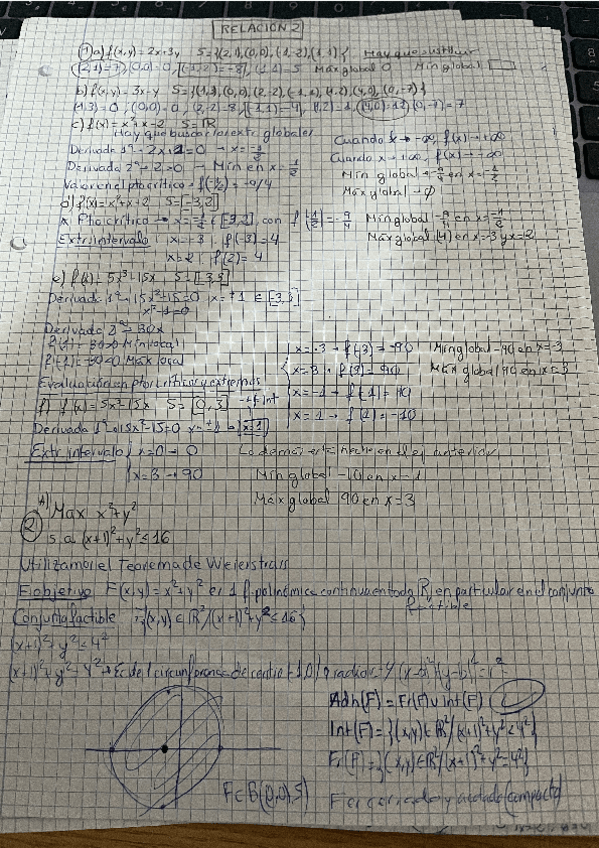 RELACION 2
① a) f(x,y) = 2x+3y S={(2,1),(0,0),(-1,-2),(1,1)} Hay que sustituir
(2,1)=7, (0,0)=0, (-1,-2)=-8, (1,1)=5 Máx global Mín global
b) f(x,y) = 3x-y S={(1,3),(0,0),(2,-2),(-1,1),(1,2),(4,0),(0,-7)}
(1,3)=0, (0,0)=0, (2,-2)=8, (-1,1)=-4, (1,2)=1, (4,0)=12, (0,-7)=7
c) f(x) = x²+x-2 S=ℝ
Hay que buscar los extr. globales
Derivada 1ª - 2x+1=0 → x=-1/2
Derivada 2ª = 2>0 → Mín en x=-1/2
Valor en el pto crítico = f(-1/2) = -9/4
Cuando x → -∞, f(x) → +∞
Cuando x → +∞, f(x) → -∞
Mín global = -9/4 en x=-1/2
Máx global → ∅
d) f(x) = x²+x-2 S=[-3,2]
Pto crítico → x=-1/2 ∈ [-3,2], con f(-1/2) = -9/4
Extr. intervalo: x=-3, f(-3)=4
x=2, f(2)=4
Mín global -9/4 en x=-1/2
Máx global (4) en x=-3 y x=2
e) f(x) = 5x³-15x S=[-3,3]
Derivada 1ª = 15x²-15=0, x=±1 ∈ [-3,3]
x²-1=0
Derivada 2ª = 30x
f(1)=30>0 Mín local
f(-1)=-30<0 Máx local
Evaluación en ptos críticos y extremos
x=-3 → f(-3)=-90
x=3 → f(3)=90
x=-1 → f(-1)=10
x=1 → f(1)=-10
Mín global -90 en x=-3
Máx global 90 en x=3
f) f(x) = 5x³-15x S=[0,3]
Derivada 1ª = 15x²-15=0 x=±1 → x=1
Extr. intervalo x=0 → 0
x=3 → 90
Lo demás está hecho en el ej anterior
Mín global -10 en x=1
Máx global 90 en x=3
② A) Max x²+y²
s.a (x+1)²+y²≤16
Utilizamos el Teorema de Weierstrass
F. objetivo F(x,y) = x²+y² es 1 f. polinómica continua en todo ℝ, en particular en el conjunto
factible
Conjunto factible F={(x,y)∈ℝ²/(x+1)²+y²≤16}
(x+1)²+y²≤4²
(x+1)²+y²=4² → Ec de 1 circunferencia de centro (-1,0) y radio=4 (x-a)²+(y-b)²=r²
Adh(F) = Fr(F) ∪ int(F)
Int(F) = {(x,y)∈ℝ²/(x+1)²+y²<4²}
Fr(F) = {(x,y)∈ℝ²/(x+1)²+y²=4²}
F⊂B((0,0),5)
F es cerrado y acotado (compacto)